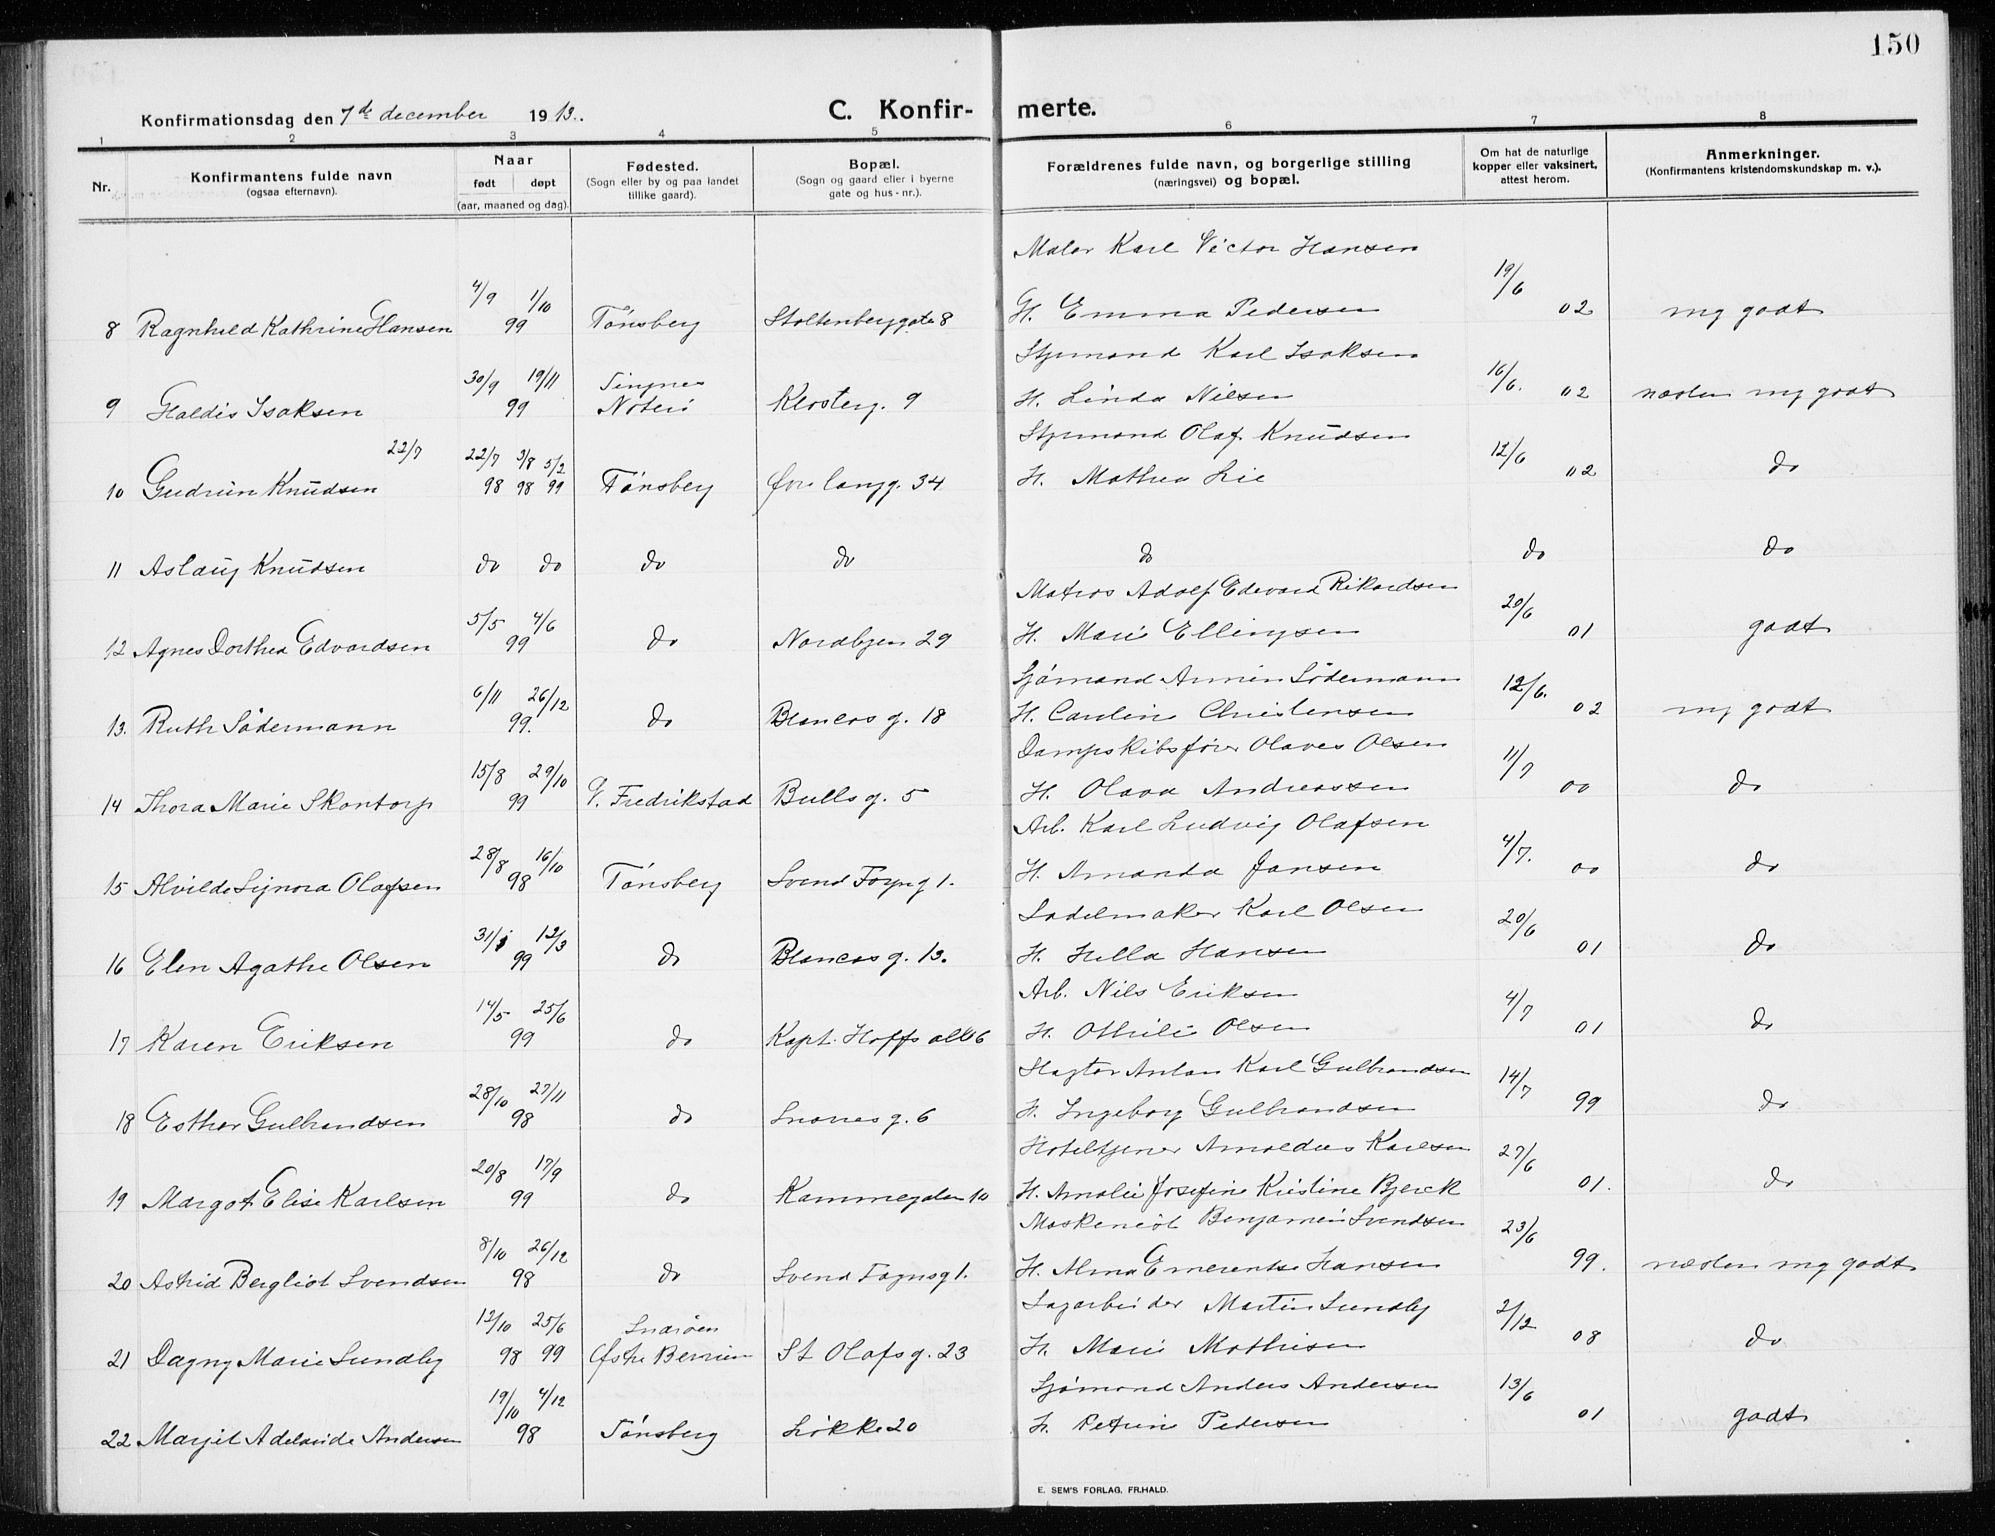 150
Konfirmationsdag den 7de december 1913. C. Konfir- merte.
1 2 3 4 5 6 7 8
Nr. Konfirmantens fulde navn (ogsaa efternavn). Naar født døpt (aar, maaned og dag). Fødested. (Sogn eller by og paa landet tillike gaard). Bopæl. (Sogn og gaard eller i byerne gate og hus-nr.). Forældrenes fulde navn, og borgerlige stilling (næringsvei) og bopæl. Om hat de naturlige kopper eller vaksinert, attest herom. Anmerkninger. (Konfirmantens kristendomskundskap m. v.).
Maler Karl Victor Hansen
8 Ragnhild Kathrine Hansen 4/9 1/10 99 Tønsberg Stoltenberggate 8 H. Emma Pedersen 19/6 02 mg godt
Styrmand Karl Isaksen
9 Haldis Isaksen 30/9 19/11 99 Nøterø Klosterg. 9 H. Linda Nilsen 16/6. 02 næsten mg godt
22/7 Styrmand Olaf Knudsen
10 Gudrun Knudsen 22/7 98 3/8 98 5/2 99 Tønsberg Øvre langg. 34 H. Mathea Lie 12/6 02 do
11 Aslaug Knudsen do do do do do do do
Matros Adolf Edvard Rikardsen
12 Agnes Dorthea Edvardsen 5/5 4/6 99 do Nordbyen 29 H. Marie Ellingsen 20/6 01 godt
Sjømand Armin Södermann
13. Ruth Södermann 6/11 26/12 99. do Blancas g. 18 H. Caroline Christensen 12/6. 02 mg godt
Dampskibsfører Olaves Olsen
14 Thora Marie Skontorp 15/8 29/10 99 G. Fredrikstad Bulls g. 5 H. Olava Andreassen 11/7 00 do
Arb. Karl Ludvig Olafsen
15 Alvilde Signora Olafsen 28/8 16/10 98 Tønsberg Svend Foyn g 1. H. Amanda Jansen 4/7. 00 do
Sadelmaker Karl Olsen
16 Elen Agathe Olsen 31/1 12/3 99 do Blancas g. 13. H. Hella Hansen 20/6 01 do
Arb. Nils Eriksen
17 Karen Eriksen 14/5 25/6 99 do Kapt. Hoffs alle 6 H. Othilie Olsen 4/7 01 do
Anton Karl Gulbrandsen
18 Esther Gulbrandsen 28/10 27/11 98 do g. 6 H. Ingeborg Gulbrandsen 14/7 99 do
Hoteltjener Arnoldus Karlsen
19 Margot Elise Karlsen 20/8 17/9 99 do Kammegaten 10 H. Amalie Josefine Kristine Bjerck 27/6 01. do
Benjamin Svendsen
20 Astrid Bergliot Svendsen 8/10 26/12 98 do Svend Foyns g 1. H. Alma Emerentse Hansen 23/6 99. næsten mg godt
Snarøen Sagarbeider Martin Sundby
21 Dagny Marie Sundby 13/10 98 25/6 99 Østre Bærum St Olafs g. 23 H. Marie Mathisen 2/12 08 do
Sjømand Anders Andersen
22 Marjit Adelaide Andersen 19/10 4/12 98 Tønsberg Løkke 20 H. Petrine Pedersen 13/6 01 godt
E. SEM'S FORLAG, FR.HALD.